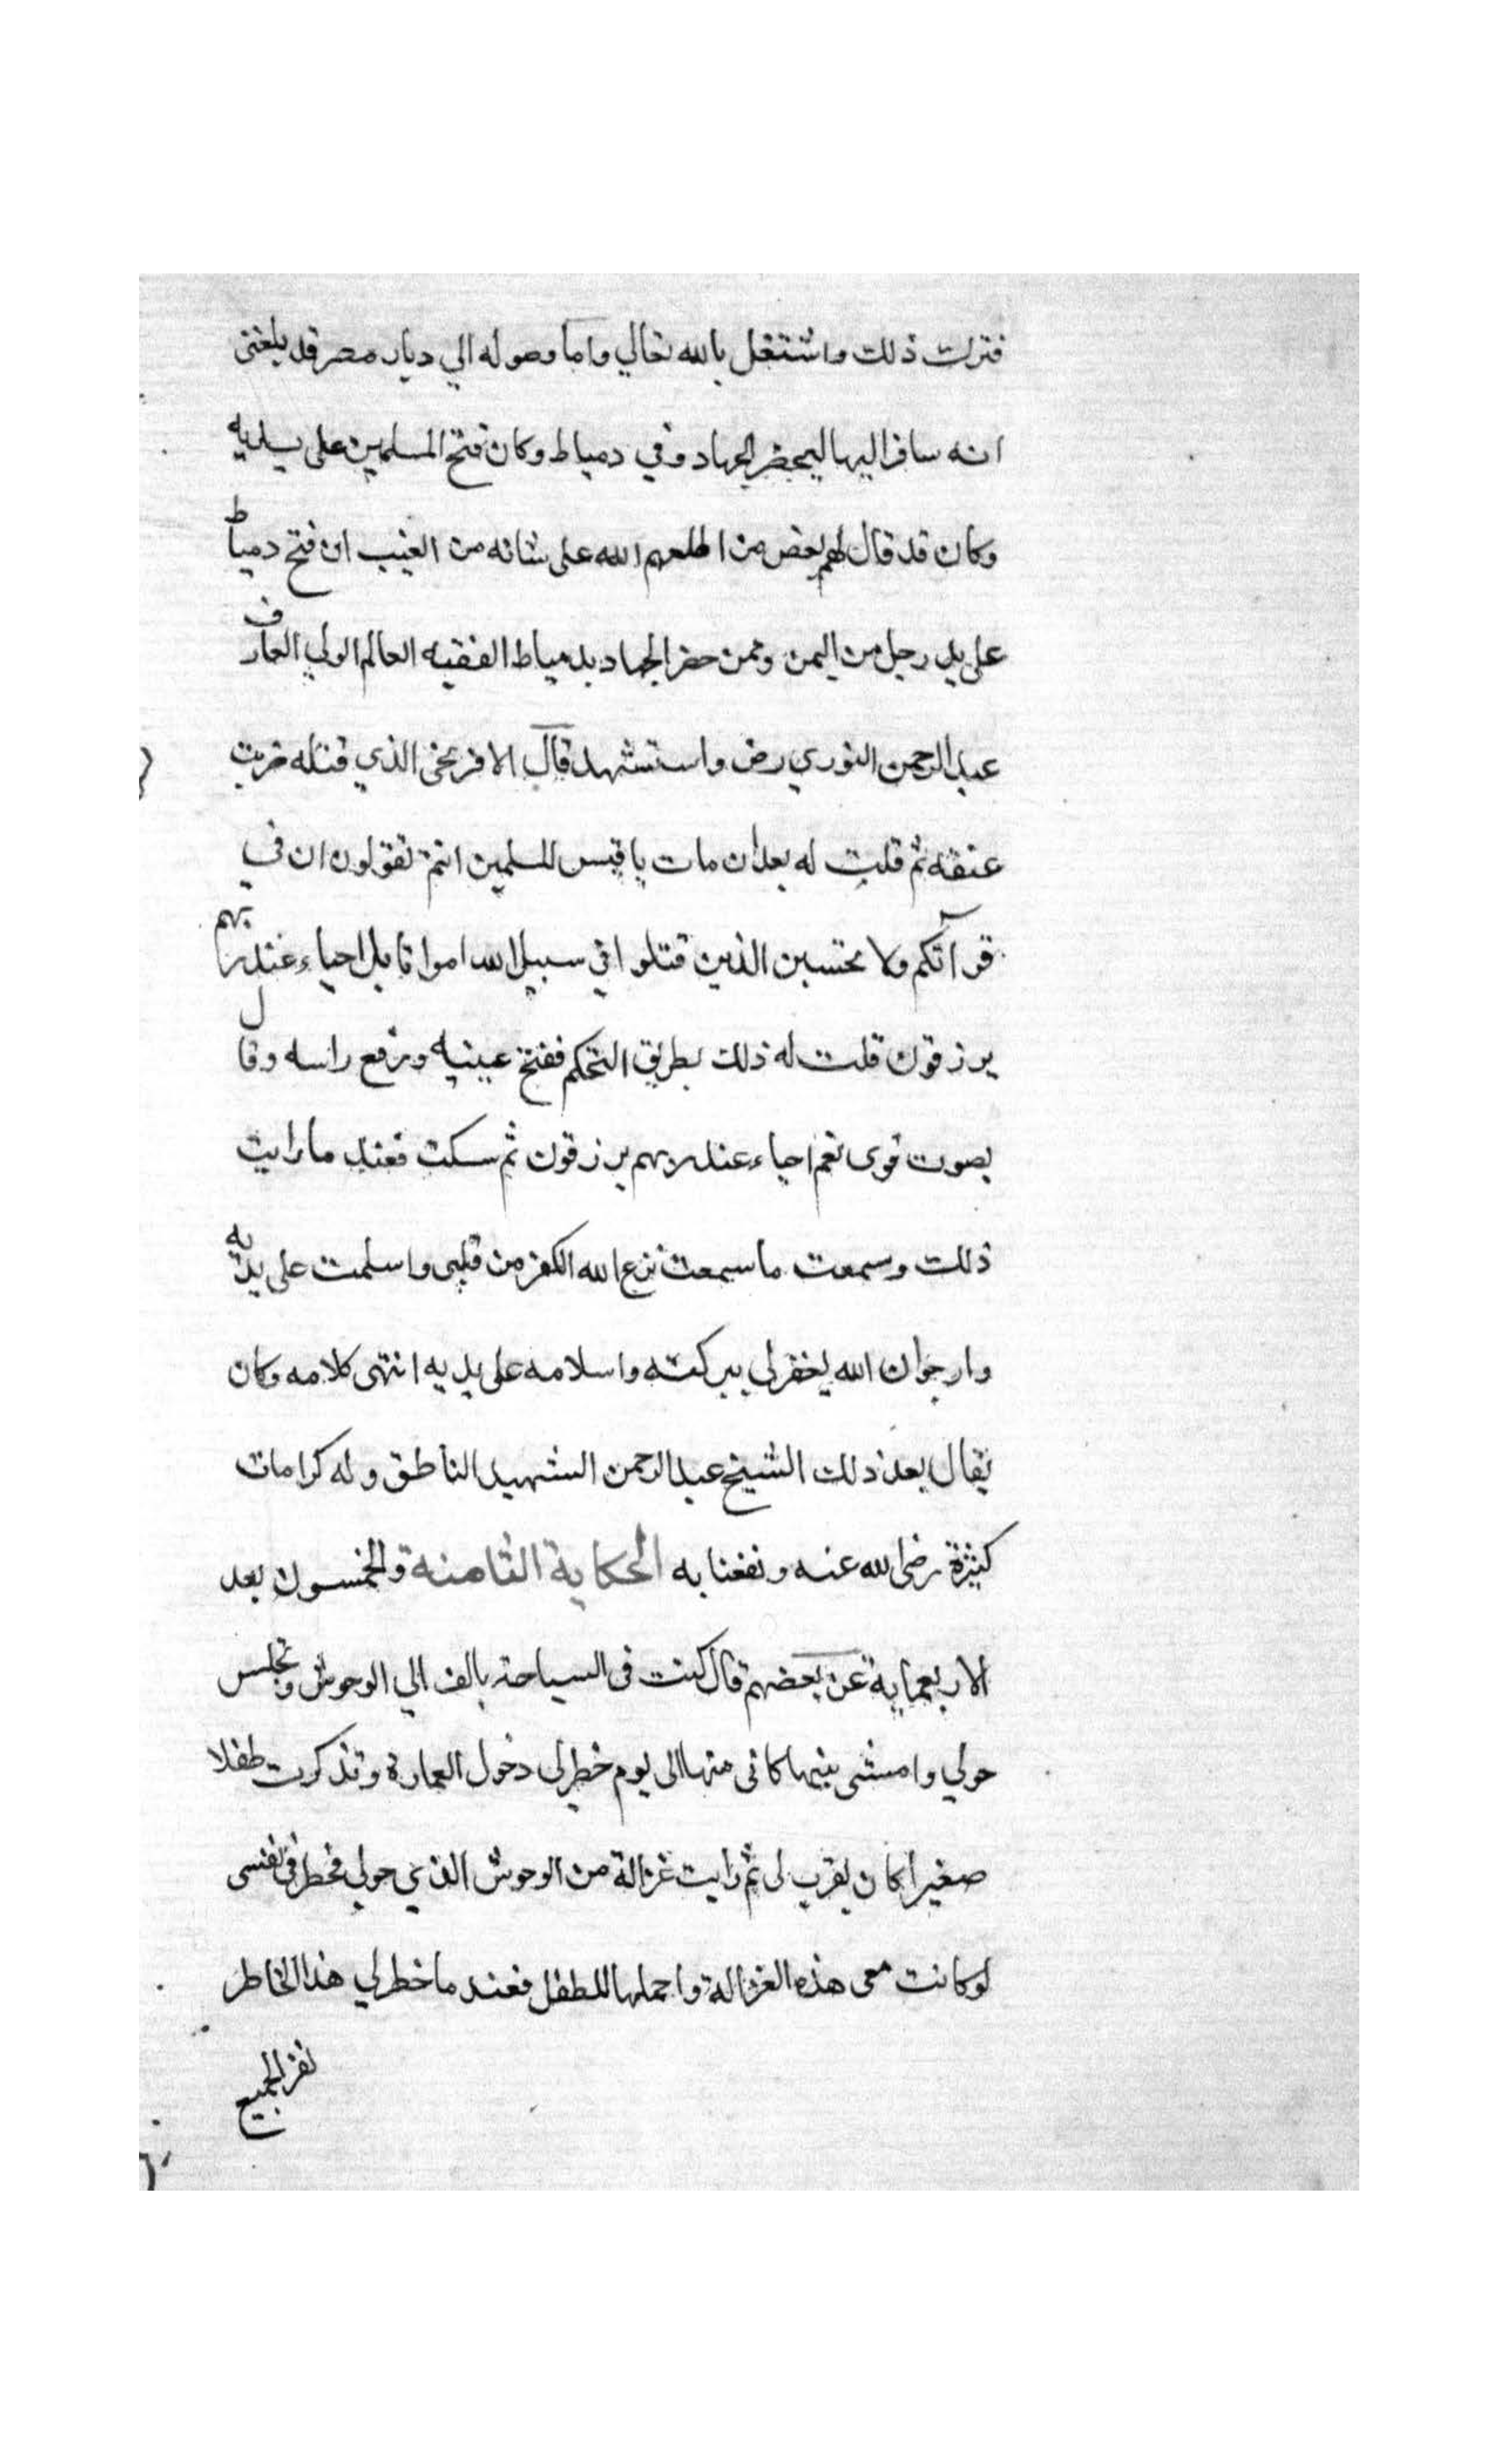 فترك ذلك واشتغل بالله تعالي واما وصوله الي ديار مصر قد بلغنى
انه سافر اليها ليحضر الجهاد وفي دمياط وكان فتح المسلمين على يديه
وكان قد قال لهم بعض من اطلعهم الله على شانه من الغيب ان فتح دمياط
على يد رجل من اليمن وممن حضر الجهاد بدمياط الفقيه العالم الولي العارف
عبد الرحمن النوري رض واستشهد قال الافرنجى الذي قتله ضربت
عنقه ثم قلت له بعد ان مات يا قيس المسلمين انتم تقولون ان في
قرآنكم ولا تحتسبن الذين قتلوا في سبيل الله امواتا بل احياء عند ربهم
يرزقون قلت له ذلك بطريق التحكم ففتح عينيه ورفع راسه وقال
بصوت قوى نعم احياء عند ربهم يرزقون ثم سكت فعند ما رايت
ذلك وسمعت ما سمعت نزع الله الكفر من قلبى واسلمت على يديه
وارجوا ان الله يغفر لي ببركته واسلامه على يديه انتهى كلامه وكان
يقال بعد ذلك الشيخ عبد الرحمن الشهيد الناطق وله كرامات
كثيرة رضى الله عنه ونفعنا به الحكاية الثامنة والخمسون بعد
الاربعماية عن بعضهم قال كنت فى السياحة بالف الي الوحوش وتجلس
حولي وامشى بينها كانى منها الى يوم خطر لى دخول العمارة وتذكرت طفلا
صغيرا كان يقرب لى ثم رايت غزالة من الوحوش الذي حولي فخطر في نفسى
لو كانت معى هذه الغزالة واحملها للطفل فعند ما خطر لي هذا الخاطر
نفر الجميع